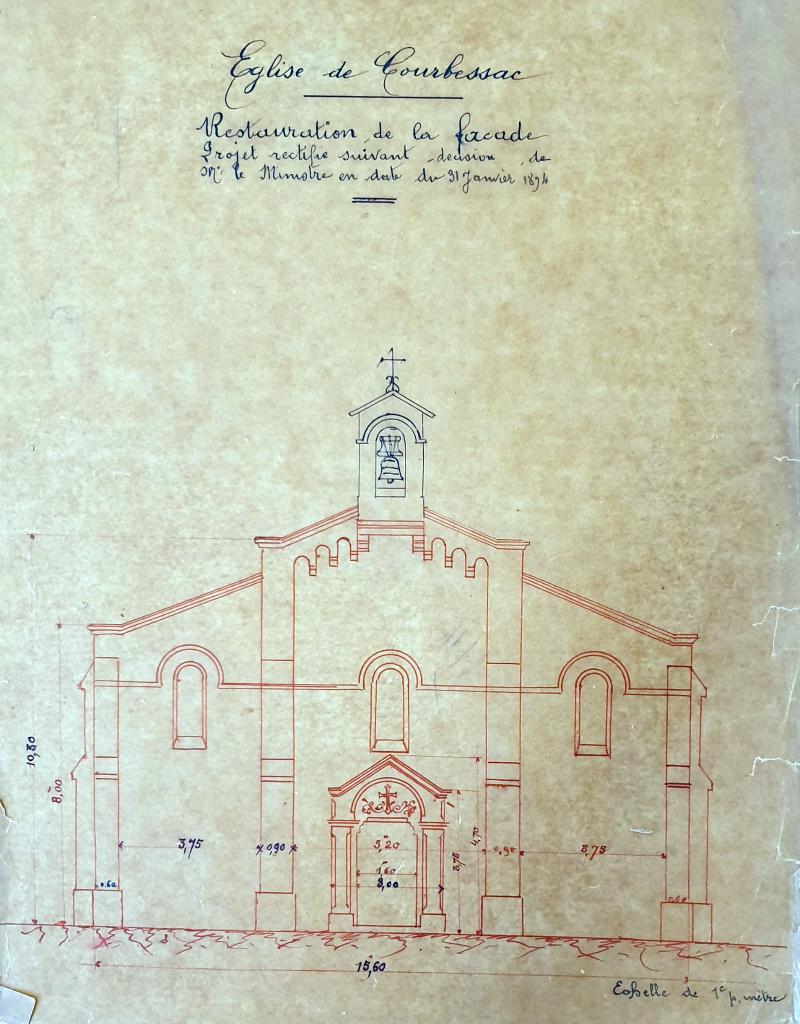 Eglise de Courbessac
Restauration de la façade
Projet rectifié suivant décision de
Mr le Ministre en date du 31 Janvier 1894
10,80
8,00
3,75
0,90
5,20
1,60
3,00
3,75
4,70
0,90
3,75
0.60
0,60
15,60
Echelle de 1c p. mètre